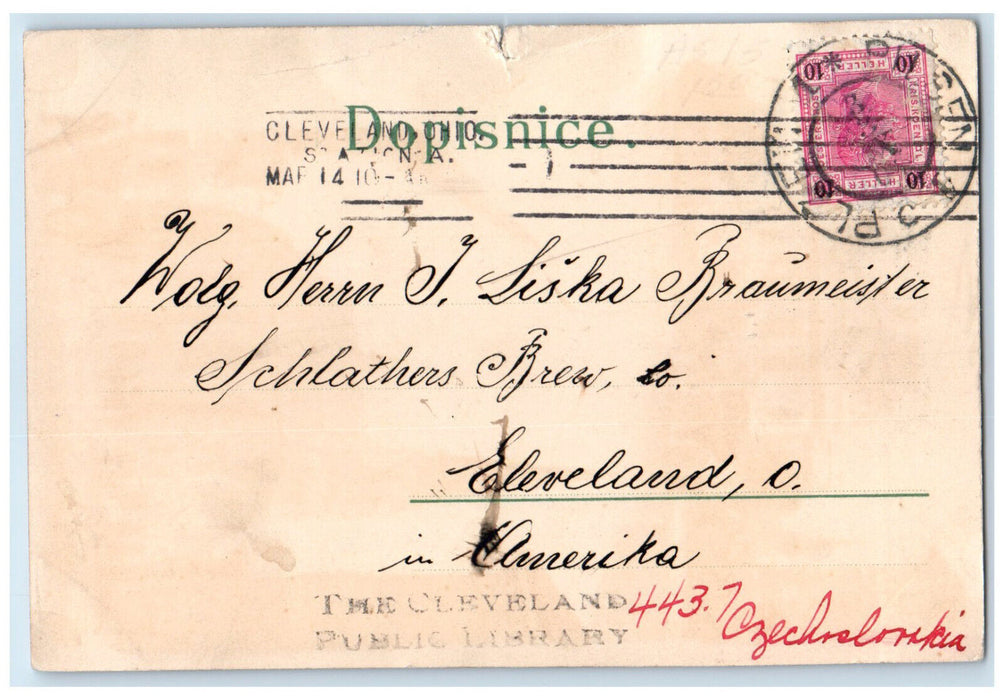 Dopisnice.
CLEVELAND, OHIO.
STATION A.
MAR 14 10-AM
PILSEN
10 HELLER 10
10 HELLER 10
Wolg. Herrn J. Liška Braumeister
Schlathers Brew, Co.
Cleveland, O.
in Amerika
THE CLEVELAND
PUBLIC LIBRARY
443.7
Czechoslovakia